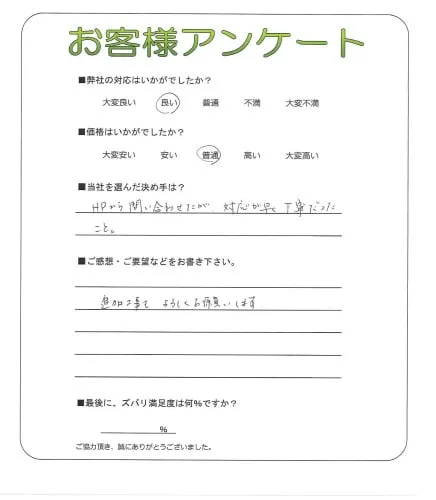 お客様アンケート
■弊社の対応はいかがでしたか？
大変良い 良い 普通 不満 大変不満
■価格はいかがでしたか？
大変安い 安い 普通 高い 大変高い
■当社を選んだ決め手は？
HPから問い合わせたが、対応が早く丁寧だった
こと。
■ご感想・ご要望などをお書き下さい。
追加工事も よろしくお願いします
■最後に、ズバリ満足度は何%ですか？
%
ご協力頂き、誠にありがとうございました。